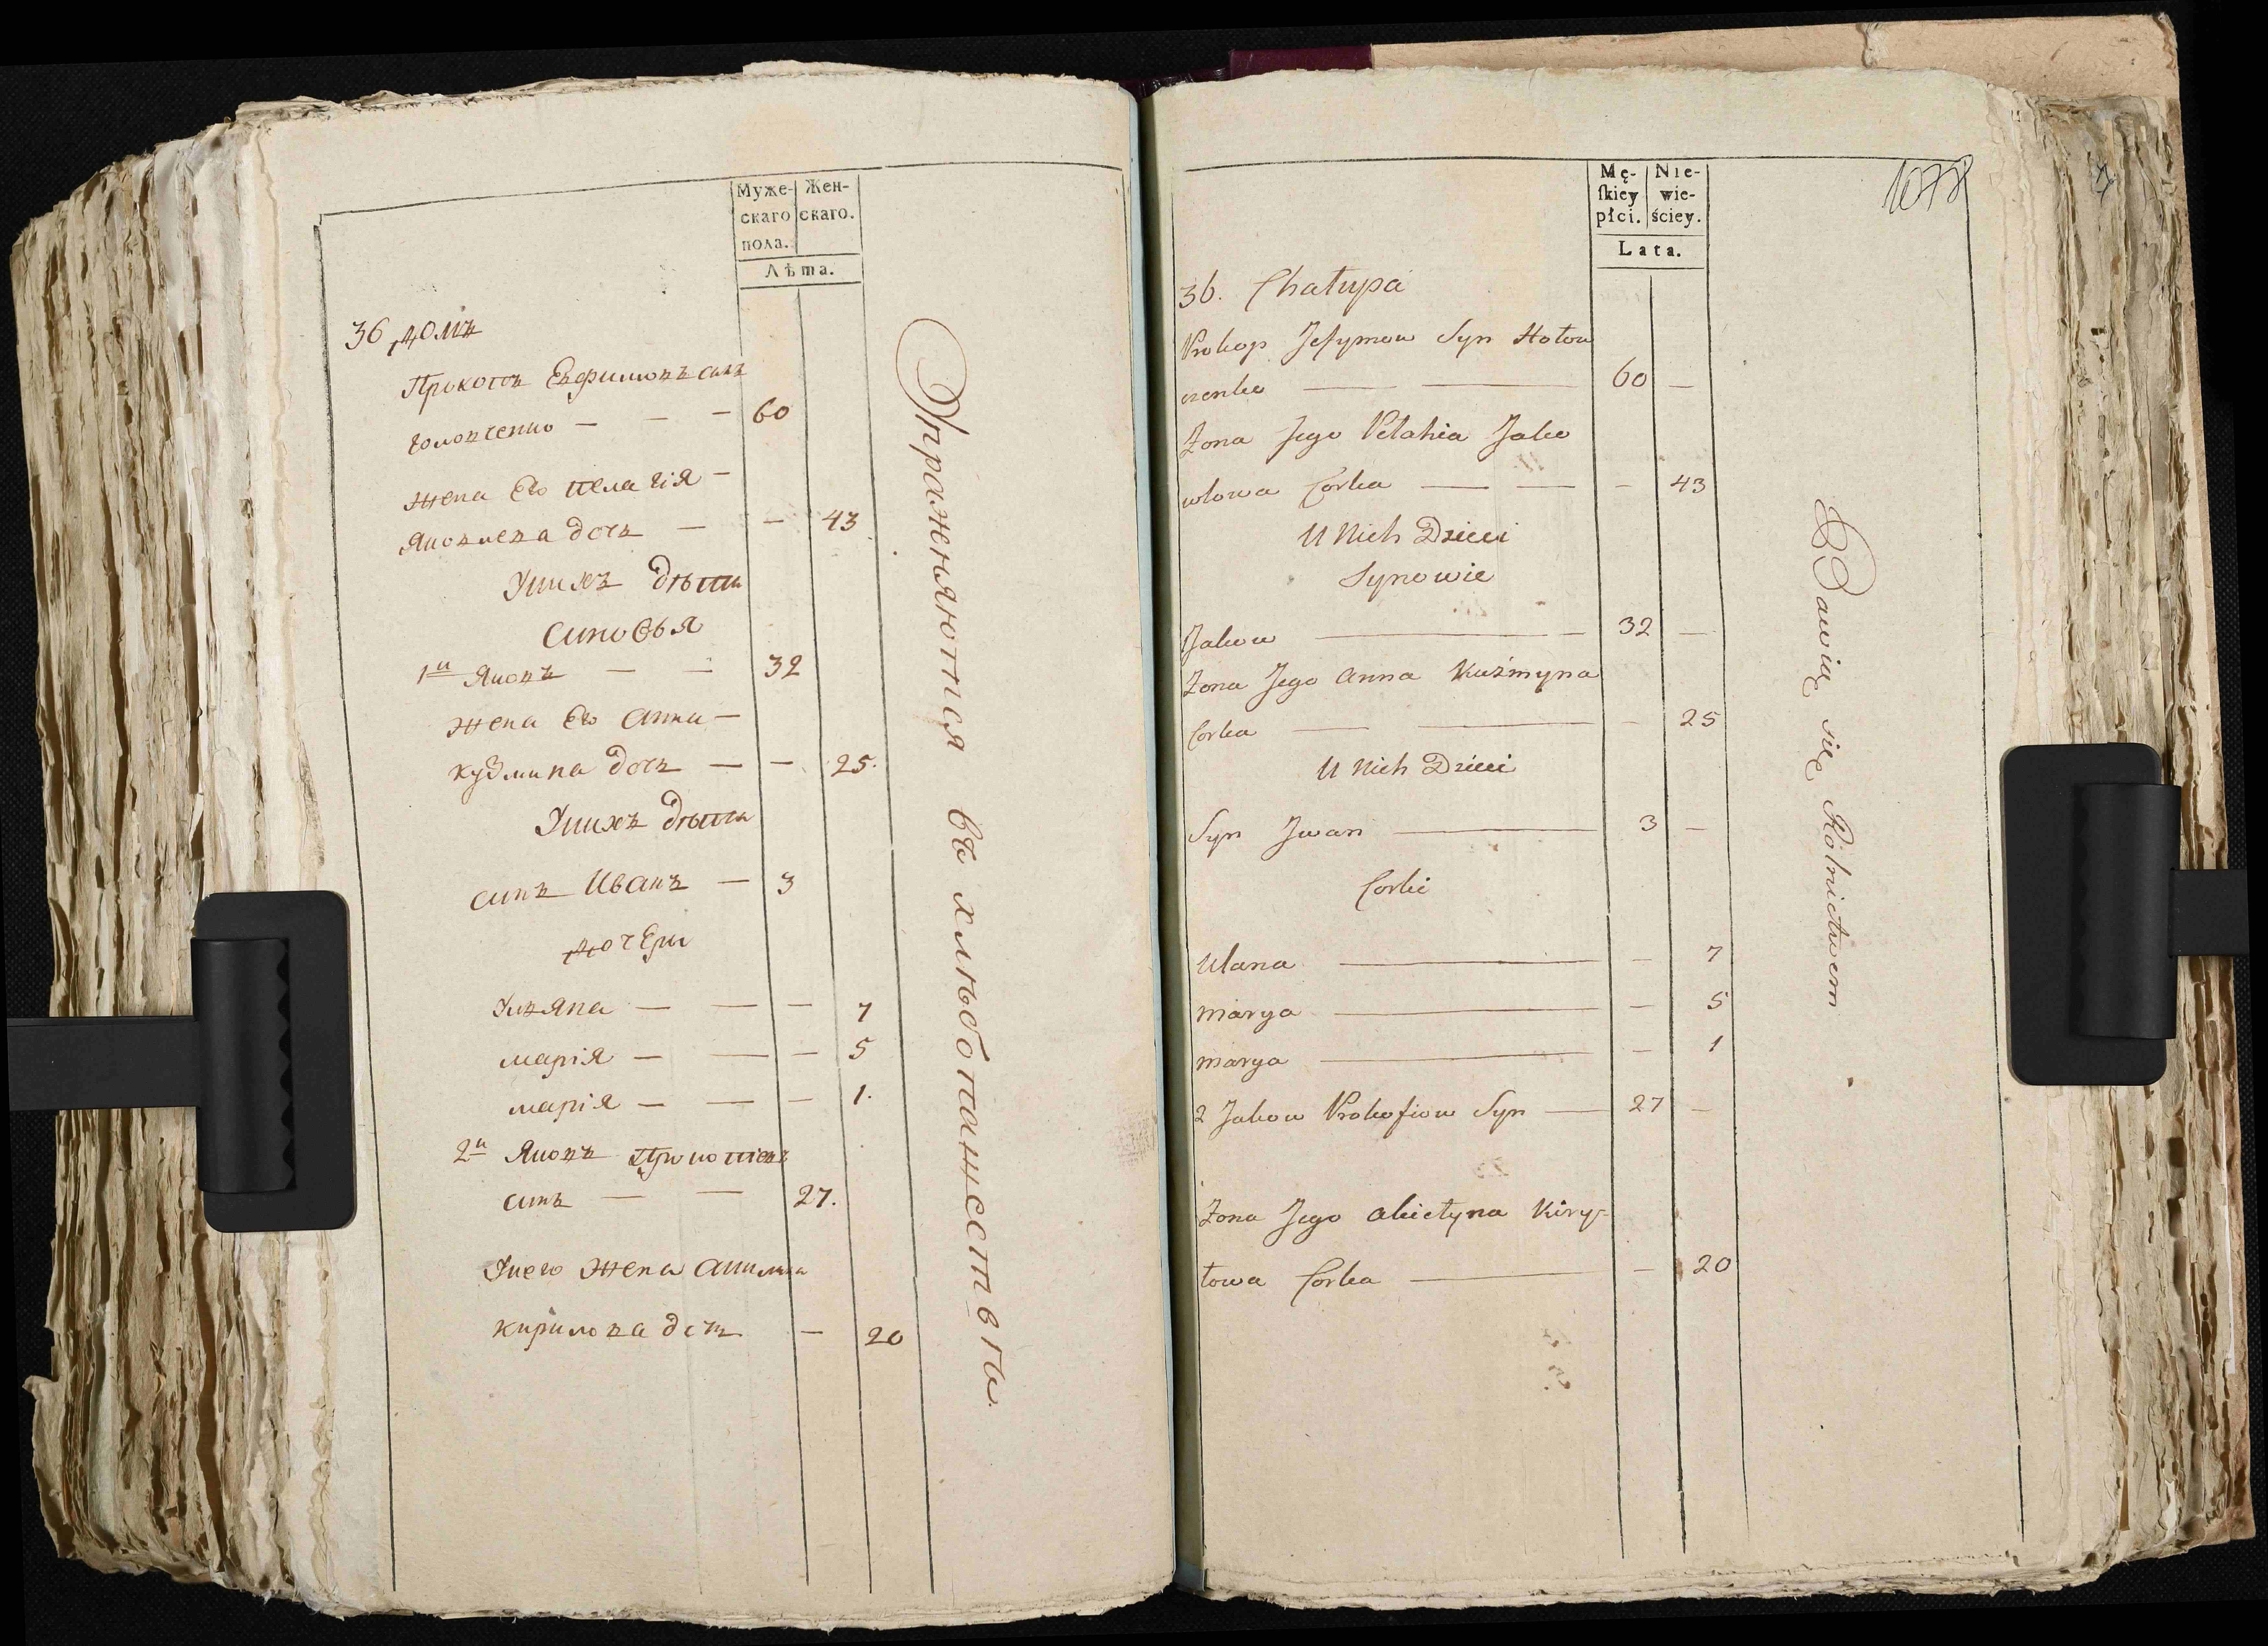 Муже-
скаго
пола.
Жен-
скаго.
Лѣта.
36 домъ
Прокопъ Ефимовъ синъ
головченко — — — 60
жена Его пелагія —
Яковлева дочь — — 43
Унихъ дѣти
синовья
1й Яковъ — — 32
жена Его анна —
кузмина дочь — — 25.
Унихъ дѣти
синъ Иванъ — 3
дочери
Уляна — — — 7
марія — — — 5
марія — — — 1.
2й Яковъ Прокопіевъ
синъ — — 27.
Унего жена акилина
кирилова дочь — 20
Упражняются въ хлѣбопашествѣ.
Mę-
skiey
płci.
Nie-
wie-
ściey.
Lata.
1078
36. Chałupa
Prokop Jefymow Syn Hołow
czenko — — 60 —
Żona Jego Pelahia Jako
wlowa Corka — — — 43
U Nich Dzieci
Synowie
Jakow — — 32 —
Żona Jego Anna Kuźmyna
Corka — — — 25
U Nich Dzieci
Syn Jwan — 3 —
Corki
Ulana — — 7
Marya — — 5
Marya — — 1
2 Jakow Prokofiow Syn — 27 —
Żona Jego Akiełyna Kiry-
łowa Corka — — 20
Bawią się Rolnictwem